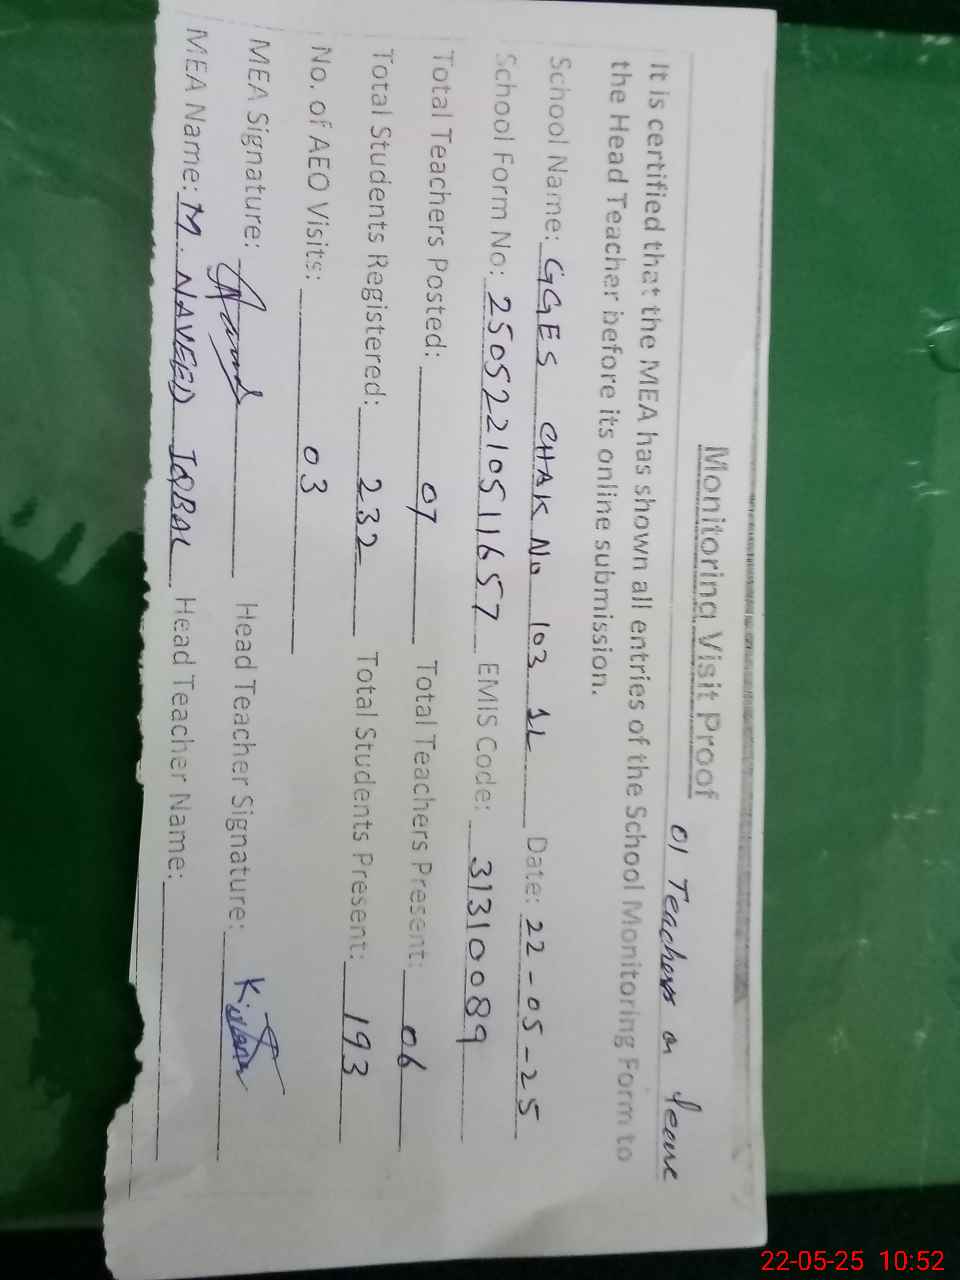 Monitoring Visit Proof
01 Teachers on leave
It is certified that the MEA has shown all entries of the School Monitoring Form to
the Head Teacher before its online submission.
School Name: GGES CHAK No 103 1L Date: 22-05-25
School Form No: 25052210511657 EMIS Code: 31310089
Total Teachers Posted: 07 Total Teachers Present: 06
Total Students Registered: 232 Total Students Present: 193
No. of AEO Visits: 03
MEA Signature: Head Teacher Signature:
MEA Name: M. NAVEED IQBAL Head Teacher Name:
22-05-25 10:52